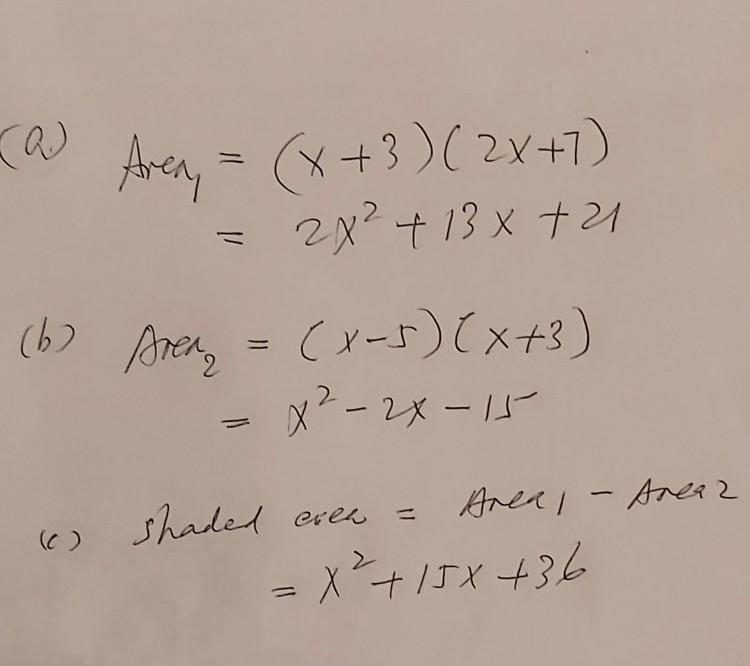 (a) Area₁ = (x+3)(2x+7)
= 2x² + 13x + 21
(b) Area₂ = (x-5)(x+3)
= x² - 2x - 15
(c) shaded area = Area1 - Area2
= x² + 15x + 36